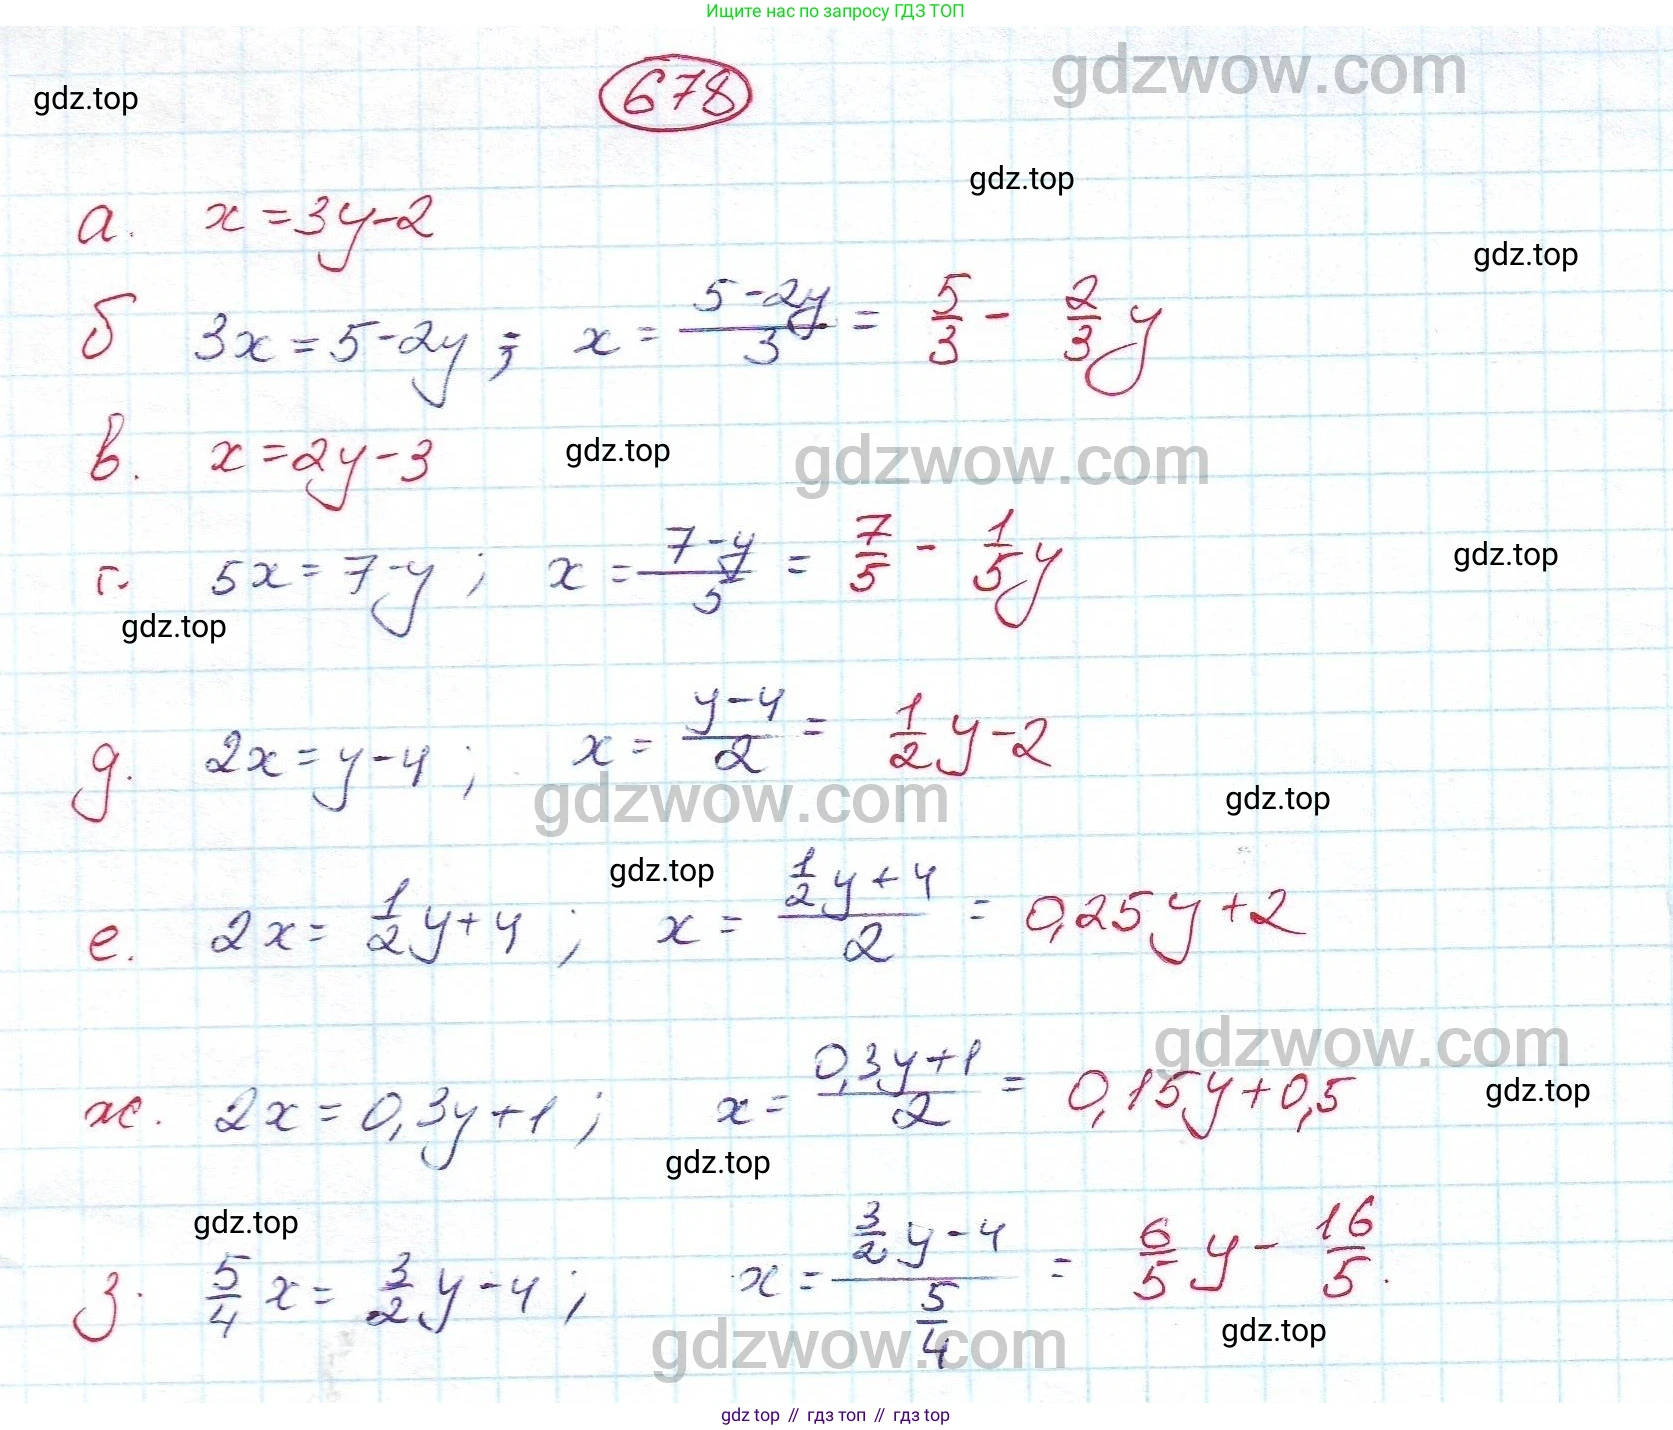 Ищите нас по запросу ГДЗ ТОП
gdzwow.com
678
gdz.top
gdz.top
а. x = 3y - 2
gdz.top
б 3x = 5 - 2y ; x = (5 - 2y)/3 = 5/3 - 2/3 y
в. x = 2y - 3
gdz.top
gdzwow.com
г. 5x = 7 - y ; x = (7 - y)/5 = 7/5 - 1/5 y
gdz.top
gdz.top
д. 2x = y - 4 ; x = (y - 4)/2 = 1/2 y - 2
gdzwow.com
gdz.top
gdz.top
е. 2x = 1/2 y + 4 ; x = (1/2 y + 4)/2 = 0,25y + 2
gdzwow.com
ж. 2x = 0,3y + 1 ; x = (0,3y + 1)/2 = 0,15y + 0,5
gdz.top
gdz.top
gdz.top
з. 5/4 x = 3/2 y - 4 ; x = (3/2 y - 4)/(5/4) = 6/5 y - 16/5.
gdzwow.com
gdz.top
gdz top // гдз топ // гдз top